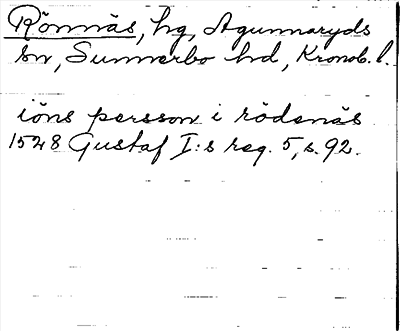 Rönnäs, hg, Agunnaryds
sn, Sunnerbo hd, Kronob. l.
iöns persson i rödenäs
1528 Gustaf I:s reg. 5, s. 92.